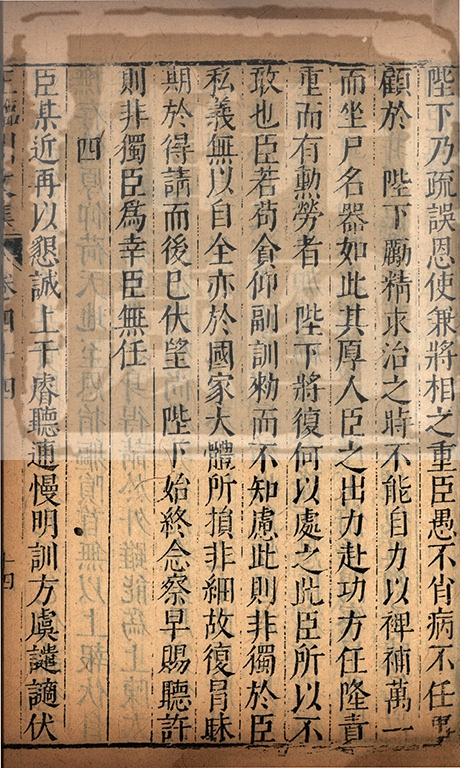 陛下乃疏誤恩使兼將相之重臣愚不肖病不任
顧於 陛下勵精求治之時不能自力以裨補萬一
而坐尸名器如此其厚人臣之出力赴功方任隆責
重而有勲勞者 陛下將復何以處之此臣所以不
敢也臣若苟貪仰副訓勑而不知慮此則非獨於臣
私義無以自全亦於國家大體所損非細故復冒昧
期於得請而後已伏望 陛下始終念察早賜聽許
則非獨臣爲幸臣無任
四
臣某近再以懇誠上干睿聽逋慢明訓方虞譴謫伏
王臨川文集 卷四十四 十四